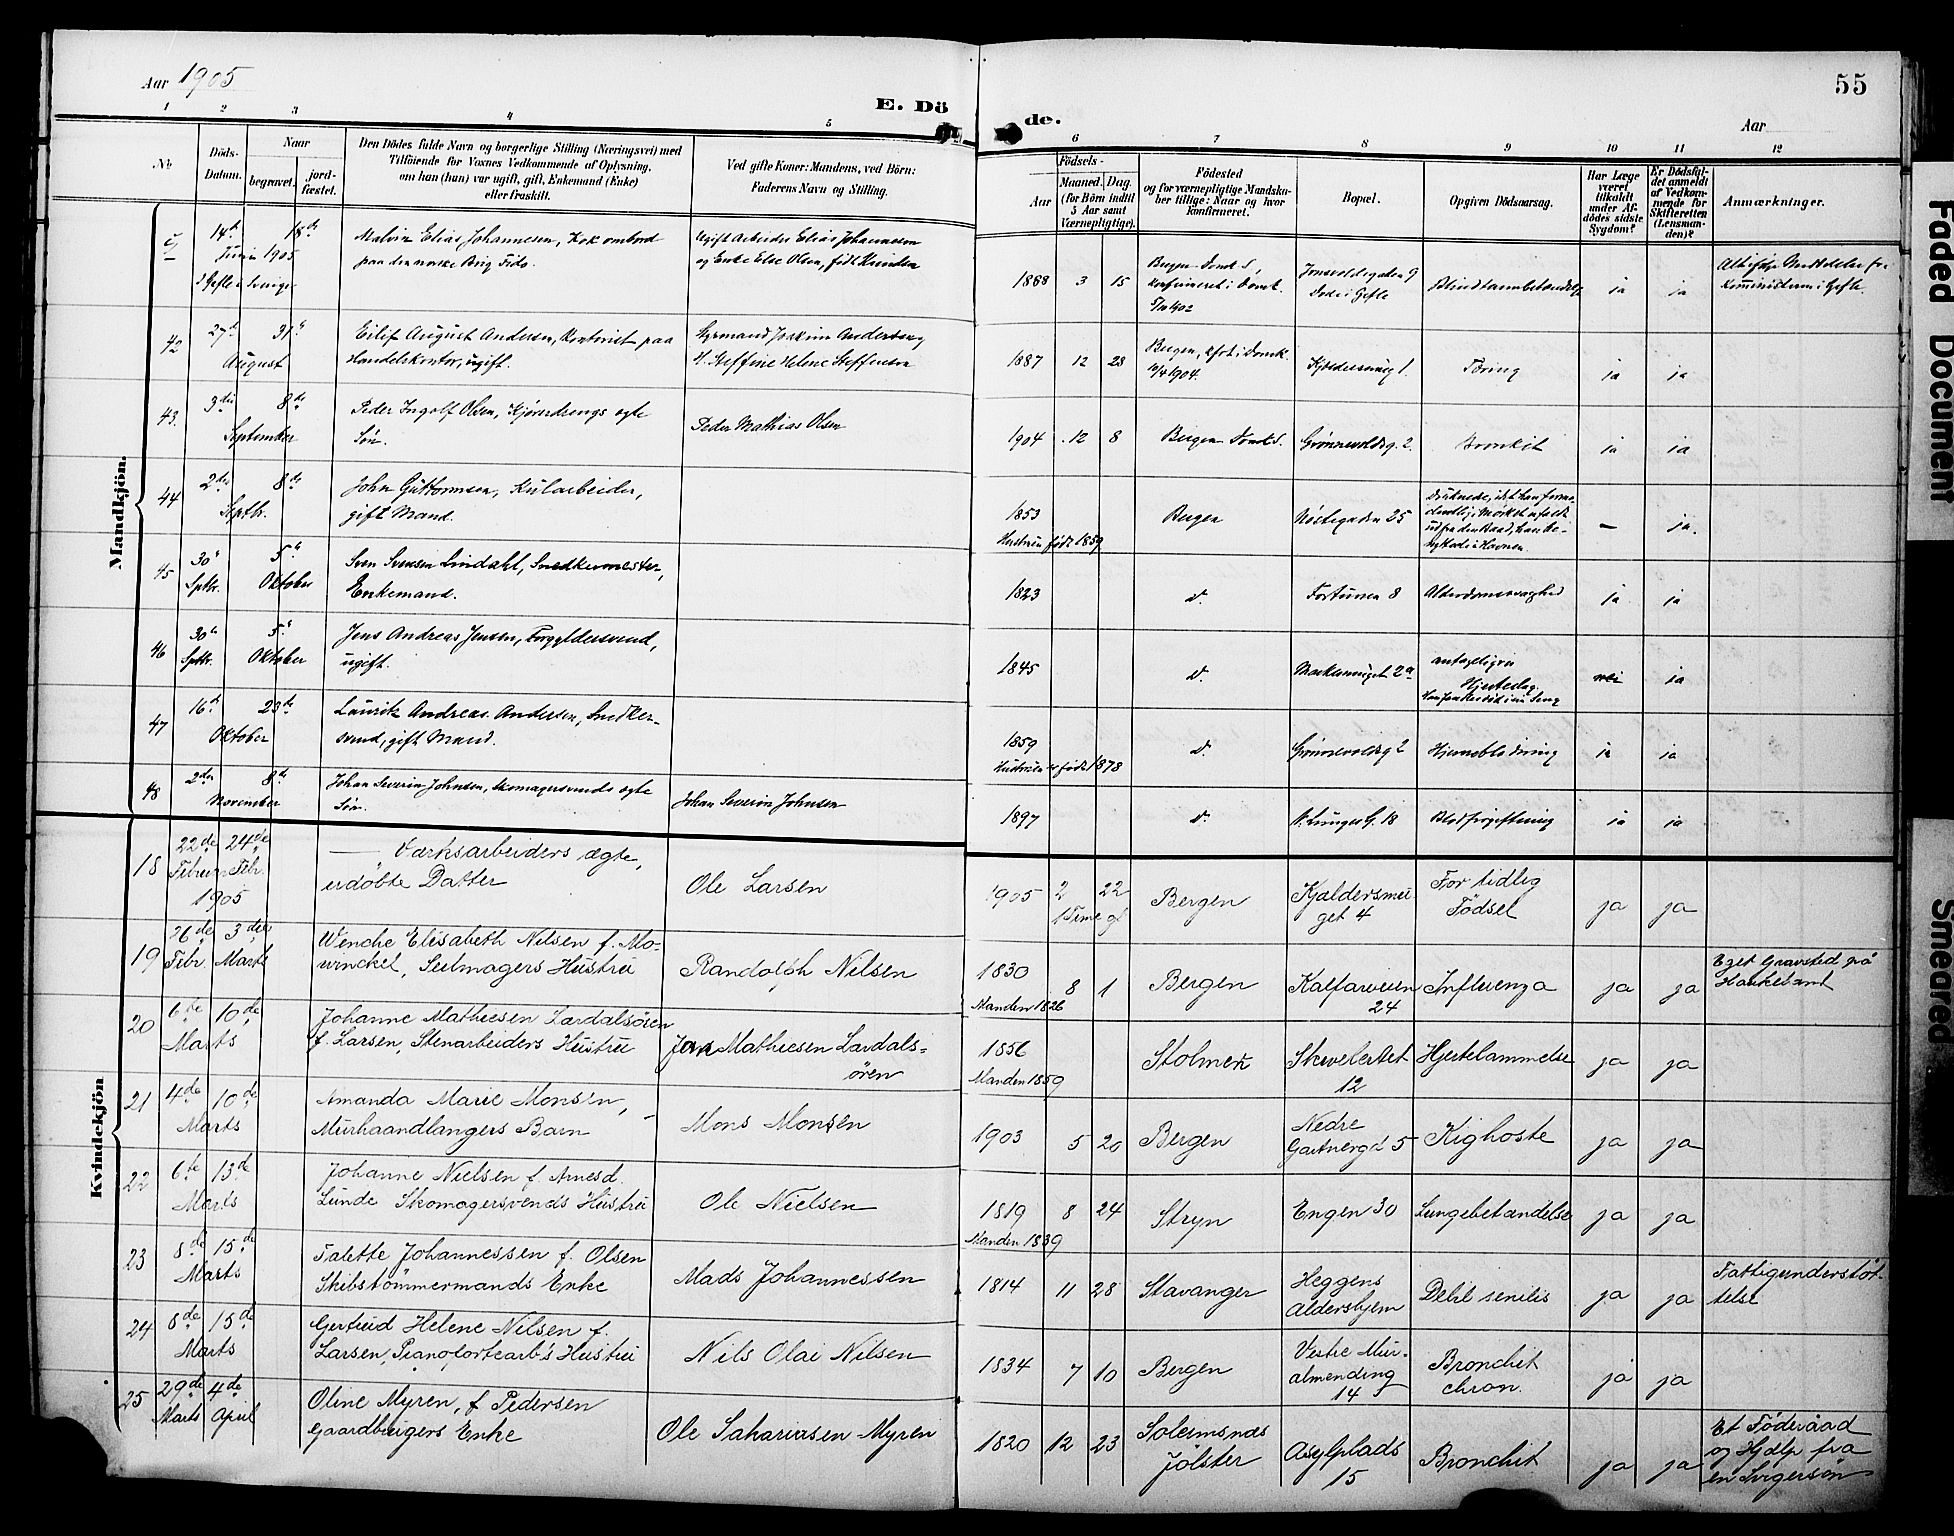 Aar 1905
E. Dö
de.
55
Aar
1 2 3 4 5
6 7 8 9 10 11 12
No
Döds-
Datum.
Naar
begravet.
jord-
fæstet.
Den Dödes fulde Navn og borgerlige Stilling (Næringsvei) med
Tilföiende for Voxnes Vedkommende af Oplysning,
om han (hun) var ugift, gift, Enkemand (Enke)
eller fraskilt.
Ved gifte Koner: Mandens, ved Börn:
Faderens Navn og Stilling.
Födsels-
Aar
Maaned. Dag.
(for Börn indtil
5 Aar samt
Værnepligtige).
Födested
og for værnepligtige Mandska-
ber tillige: Naar og hvor
konfirmeret.
Bopæl.
Opgiven Dödsaarsag.
Har Læge
været
tilkaldt
under Af-
dödes sidste
Sygdom?
Er Dödsfal-
det anmeldt
af Vedkom-
mende for
Skifteretten
(Lensman-
den)?
Anmærkninger.
Mandkjön.
14de 18de
Juni 1905
i Gefle i Sverige
Malvin Elias Johannesen, Kok ombord
paa den norske Brig Fido.
Ugift Arbeider Elias Johannesen
og Enke Else Olsen, født Knudsen
1888 3 15
Bergen Domk.S,
konfirmeret i Domk.
Døde i Gefle
Blindtarmbetændelse
ja ja
42 27de 31te
August
Eilif August Andersen, Kontorist paa
Handelskontor, ugift.
Styrmand Joakim Andersen og
H. Steffine Helene Steffensen
1887 12 28
Bergen, kft. i Domk.
1904.
Tæring
ja ja
43. 3die 8de
September
Peder Ingolf Olsen, Kjøredrengs ægte
Søn.
Peder Mathias Olsen
1904 12 8
Bergen Domk.S.
Grønnevoldsg. 2.
Bronkit
ja ja
44 2den 8de
Septbr.
John Guttormsen, Kularbeider,
gift Mand.
1853
Hustruen født 1859
Bergen
Nøstegaden 25
— ja.
45 30te 5te
Septbr. Oktober
Sven Svensen Lindahl, Snedkermester,
Enkemand.
1823 d. Fortunen 8 Alderdomssvaghed ja ja
46 30te 5te
Septbr. Oktober
Jens Andreas Jensen, Forgyldersvend,
ugift.
1845 d. 2a
antageligvis
Hjerteslag.
nei ja
47 16de 23de
Oktober
Lauritz Andreas Andersen, Snedker-
svend, gift Mand.
1859
Hustruen er født 1878
d. Grønnevoldsg 2 Hjerneblødning ja ja
48 2den 8de
November
Johan Severin Johnsen, Skomagersvends ægte
Søn.
Johan Severin Johnsen
1897 d. N. Lunges G. 18 Blodforgiftning ja ja
Kvindekjön
18 22de 24de
Februar Febr.
1905
— Værksarbeiders ægte,
udøbte Datter
Ole Larsen
1905 2 22
1 Time gl
Bergen
Kjældersmu-
get 4
For tidlig
Fødsel
ja ja
19 26de 3die
Febr. Marts
Wenche Elisabeth Nilsen f. Mo-
winckel, Seilmagers Hustru
Randolph Nilsen
1830 8 1
Manden 1826
Bergen
Kalfarveien
24
Influenza
ja ja
Eget Gravsted på
20 6te 10de
Marts
Johanne Mathiesen Lærdalsøren
f. Larsen, Stenarbeiders Hustru
Jon Mathiesen Lærdals-
øren
1856
Manden 1859
Stolmen
Skivebakket
12
Hjertelammelse
ja ja
21 4de 10de
Marts
Amanda Marie Monsen,
Murhaandlangers Barn
Mons Monsen
1903 5 20
Bergen
Nedre
Gartnergd 5
Kighoste
ja ja
22 6te 13de
Marts
Johanne Nielsen f. Arnesd.
Lunde Skomagersvends Hustru
Ole Nielsen
1819 8 24
Manden 1839
Stryn
Engen 30
Lungebetændelse
ja ja
23 8de 15de
Marts
Talette Johannessen f. Olsen
Skibstømmermands Enke
Mads Johannessen
1814 11 28
Stavanger
Heggens
Aldershjem
Debil senilis
ja ja
Fattigunderstøt-
telse
24 8de 15de
Marts
Gertrud Helene Nilsen f.
Larsen, Pianofortearb's Hustru
Nils Olai Nilsen
1834 7 10
Bergen
Vestre Mur-
almending
14
Bronchit
chron.
ja ja
25 29de 4de
Marts April
Oline Myren, f Pedersen
Gaardbrugers Enke
Ole Sahariasen Myren
1820 12 23
Solemsnes
Jølster
Asylplads
15
Bronchit
ja ja
Et Føderåad
og Hjælp fra
en Svigersøn
Faded Document
Smeared